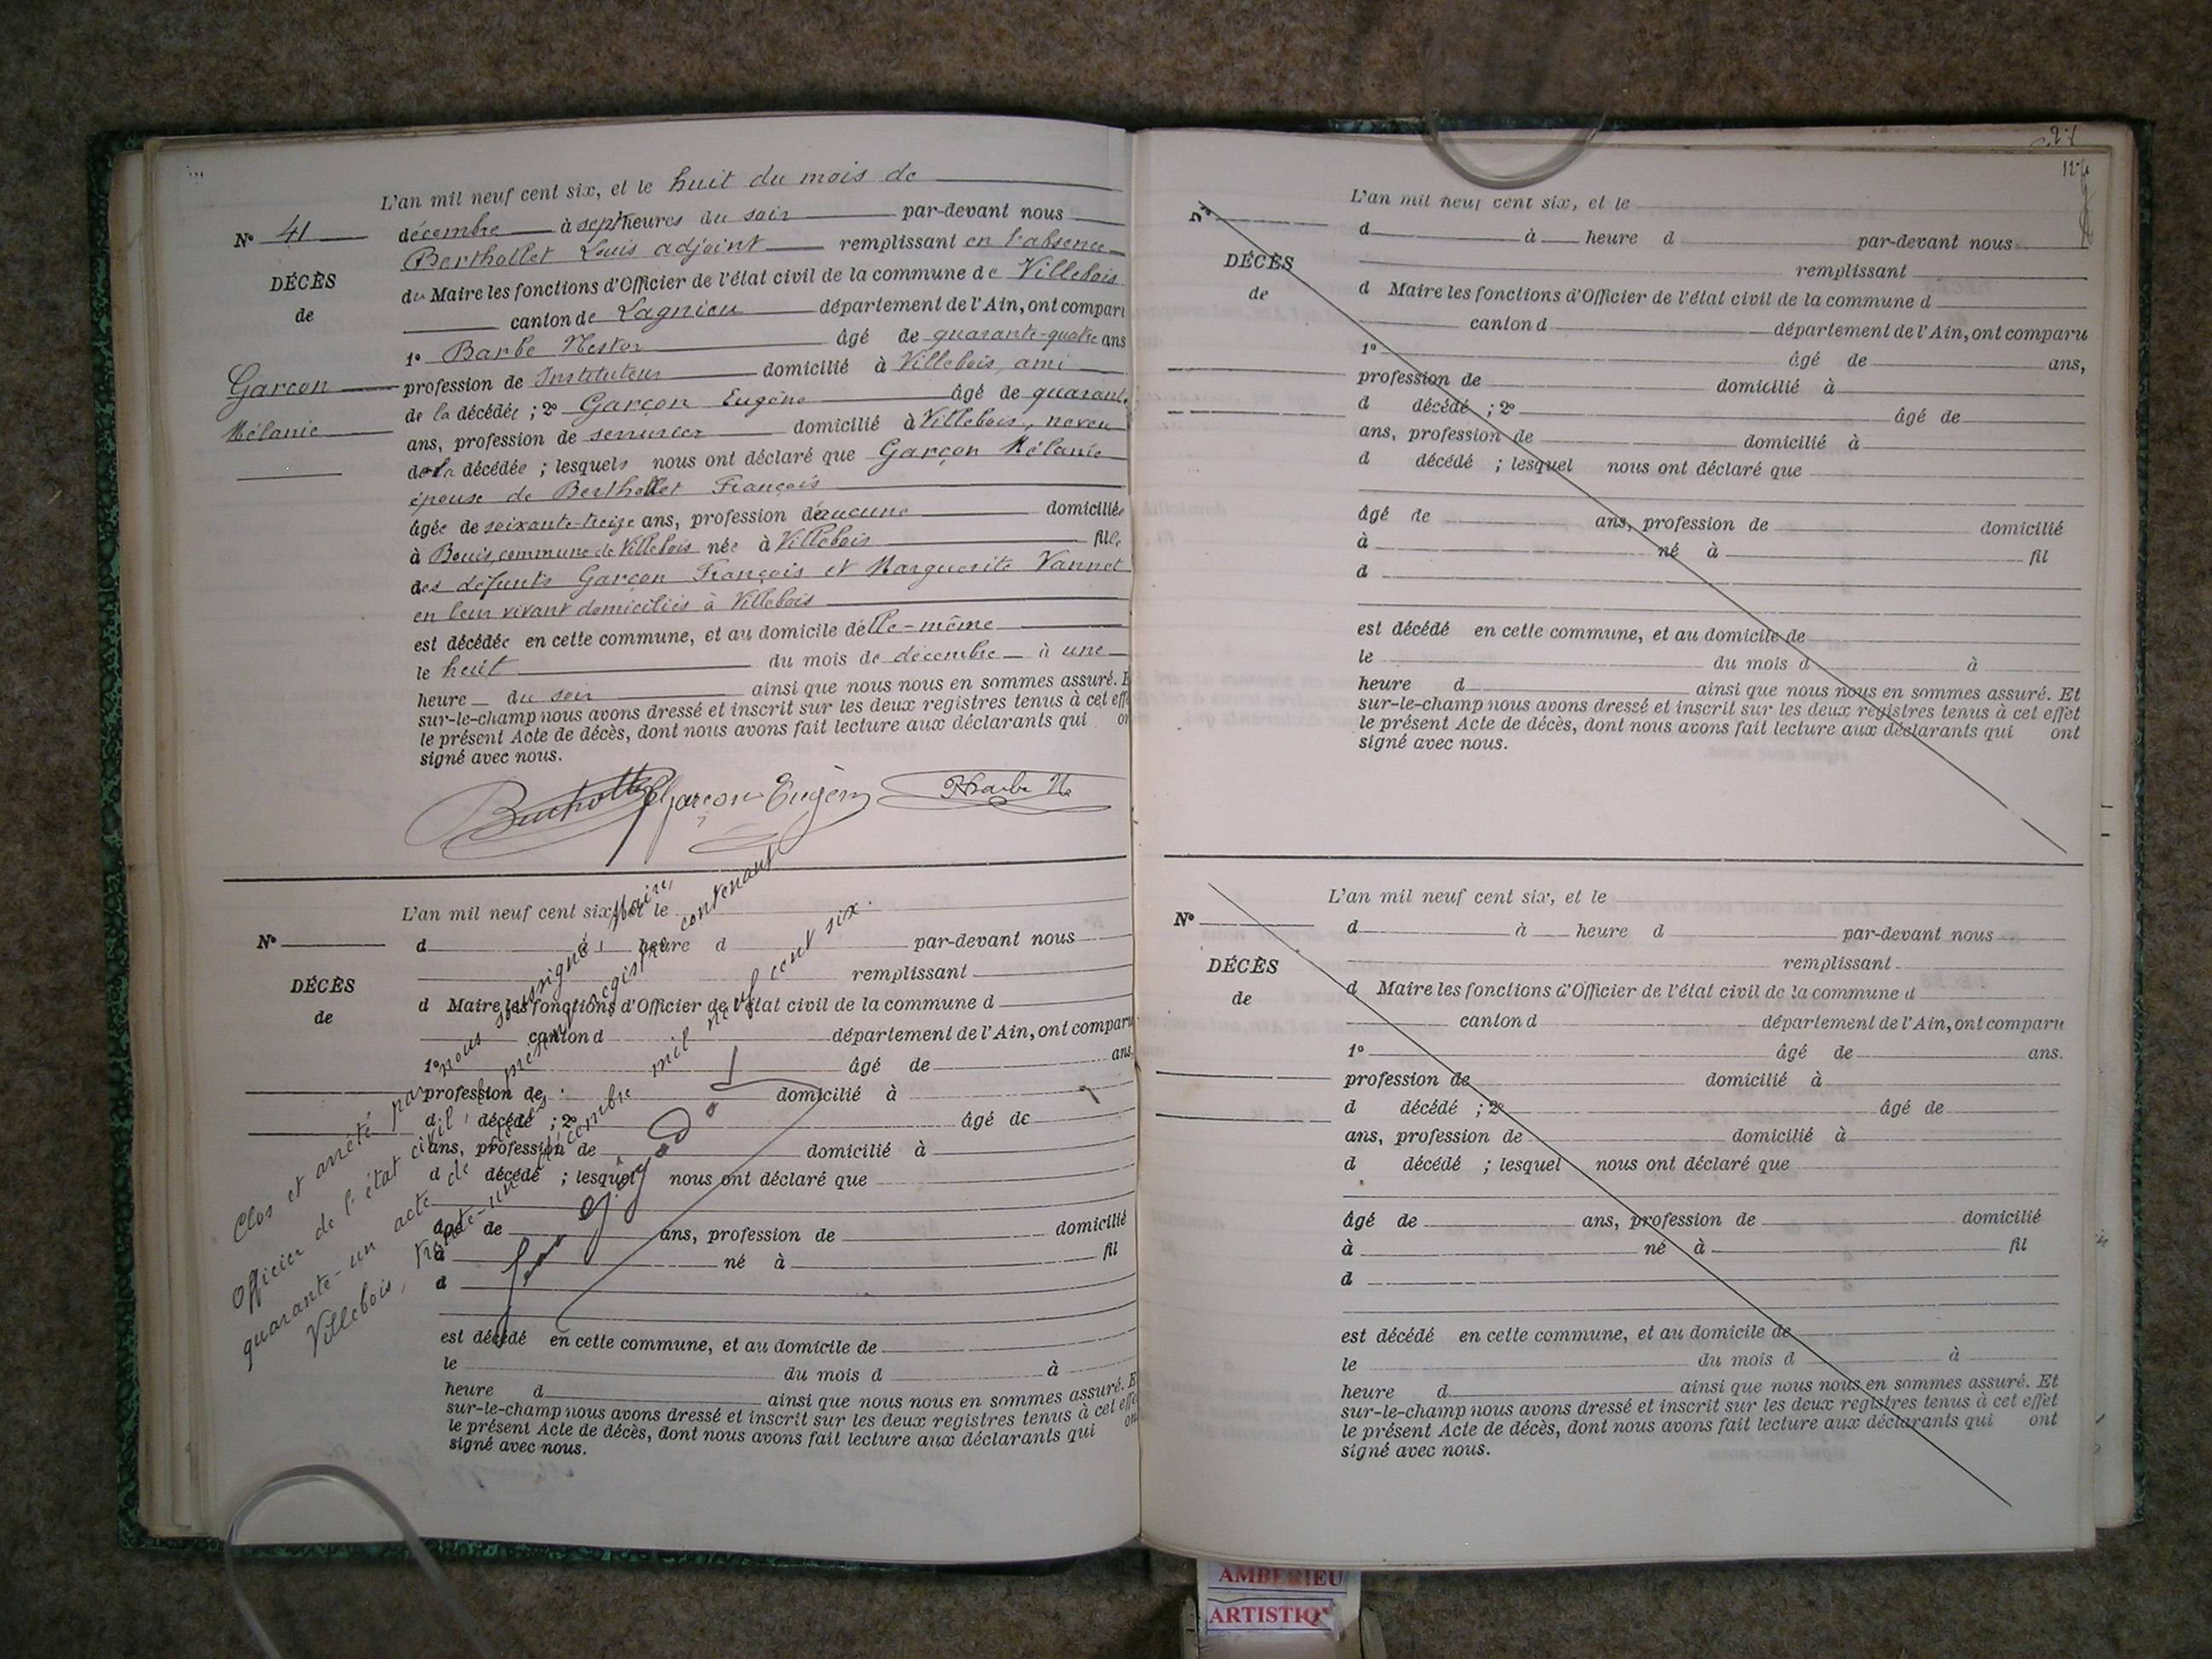 L'an mil neuf cent six, et le huit du mois de
N° 41
décembre à sept heures du soir par-devant nous
Berthollet Louis adjoint remplissant en l'absence
DÉCÈS
du Maire les fonctions d'Officier de l'état civil de la commune de Villebois
de
canton de Lagnieu département de l'Ain, ont compar
1° Barbe Nestor âgé de quarante-quatre ans
Garçon
profession de Instituteur domicilié à Villebois, ami
de la décédée ; 2° Garçon Eugène âgé de quarante
Mélanie
ans, profession de serrurier domicilié à Villebois, neveu
de la décédée ; lesquels nous ont déclaré que Garçon Mélanie
épouse de Berthollet François
âgée de soixante-treize ans, profession d'aucune domiciliée
à Bouis, commune de Villebois née à Villebois fille
des défunts Garçon François et Marguerite Vannet
en leur vivant domiciliés à Villebois
est décédée en cette commune, et au domicile d'elle-même
le huit du mois de décembre à une
heure du soir ainsi que nous nous en sommes assuré. E
sur-le-champ nous avons dressé et inscrit sur les deux registres tenus à cet eff
le présent Acte de décès, dont nous avons fait lecture aux déclarants qui on
signé avec nous.
Berthollet Garçon Eugène Barbe N.
L'an mil neuf cent six, et le
N°
d à heure d par-devant nous
remplissant
DÉCÈS
d Maire les fonctions d'Officier de l'état civil de la commune d
de
canton d département de l'Ain, ont comparu
1° âgé de ans,
profession de domicilié à
d décédé ; 2° âgé de
ans, profession de domicilié à
d décédé ; lesquel nous ont déclaré que
âgé de ans, profession de domicilié
à né à fil
d
est décédé en cette commune, et au domicile de
le du mois d à
heure d ainsi que nous nous en sommes assuré. E
sur-le-champ nous avons dressé et inscrit sur les deux registres tenus à cet effe
le présent Acte de décès, dont nous avons fait lecture aux déclarants qui on
signé avec nous.
Clos et arrêté par nous soussigné, Maire,
Officier de l'état civil, le présent registre contenant
quarante-un acte de décès.
Villebois, trente-un décembre mil neuf cent six.
27
L'an mil neuf cent six, et le
N°
d à heure d par-devant nous
DÉCÈS
remplissant
de
d Maire les fonctions d'Officier de l'état civil de la commune d
canton d département de l'Ain, ont comparu
1° âgé de ans,
profession de domicilié à
d décédé ; 2° âgé de
ans, profession de domicilié à
d décédé ; lesquel nous ont déclaré que
âgé de ans, profession de domicilié
à né à fil
d
est décédé en cette commune, et au domicile de
le du mois d à
heure d ainsi que nous nous en sommes assuré. Et
sur-le-champ nous avons dressé et inscrit sur les deux registres tenus à cet effet
le présent Acte de décès, dont nous avons fait lecture aux déclarants qui ont
signé avec nous.
L'an mil neuf cent six, et le
N°
d à heure d par-devant nous
remplissant
DÉCÈS
d Maire les fonctions d'Officier de l'état civil de la commune d
de
canton d département de l'Ain, ont comparu
1° âgé de ans.
profession de domicilié à
d décédé ; 2° âgé de
ans, profession de domicilié à
d décédé ; lesquel nous ont déclaré que
âgé de ans, profession de domicilié
à né à fil
d
est décédé en cette commune, et au domicile de
le du mois d à
heure d ainsi que nous nous en sommes assuré. Et
sur-le-champ nous avons dressé et inscrit sur les deux registres tenus à cet effet
le présent Acte de décès, dont nous avons fait lecture aux déclarants qui ont
signé avec nous.
AMBERIEU
ARTISTIQ